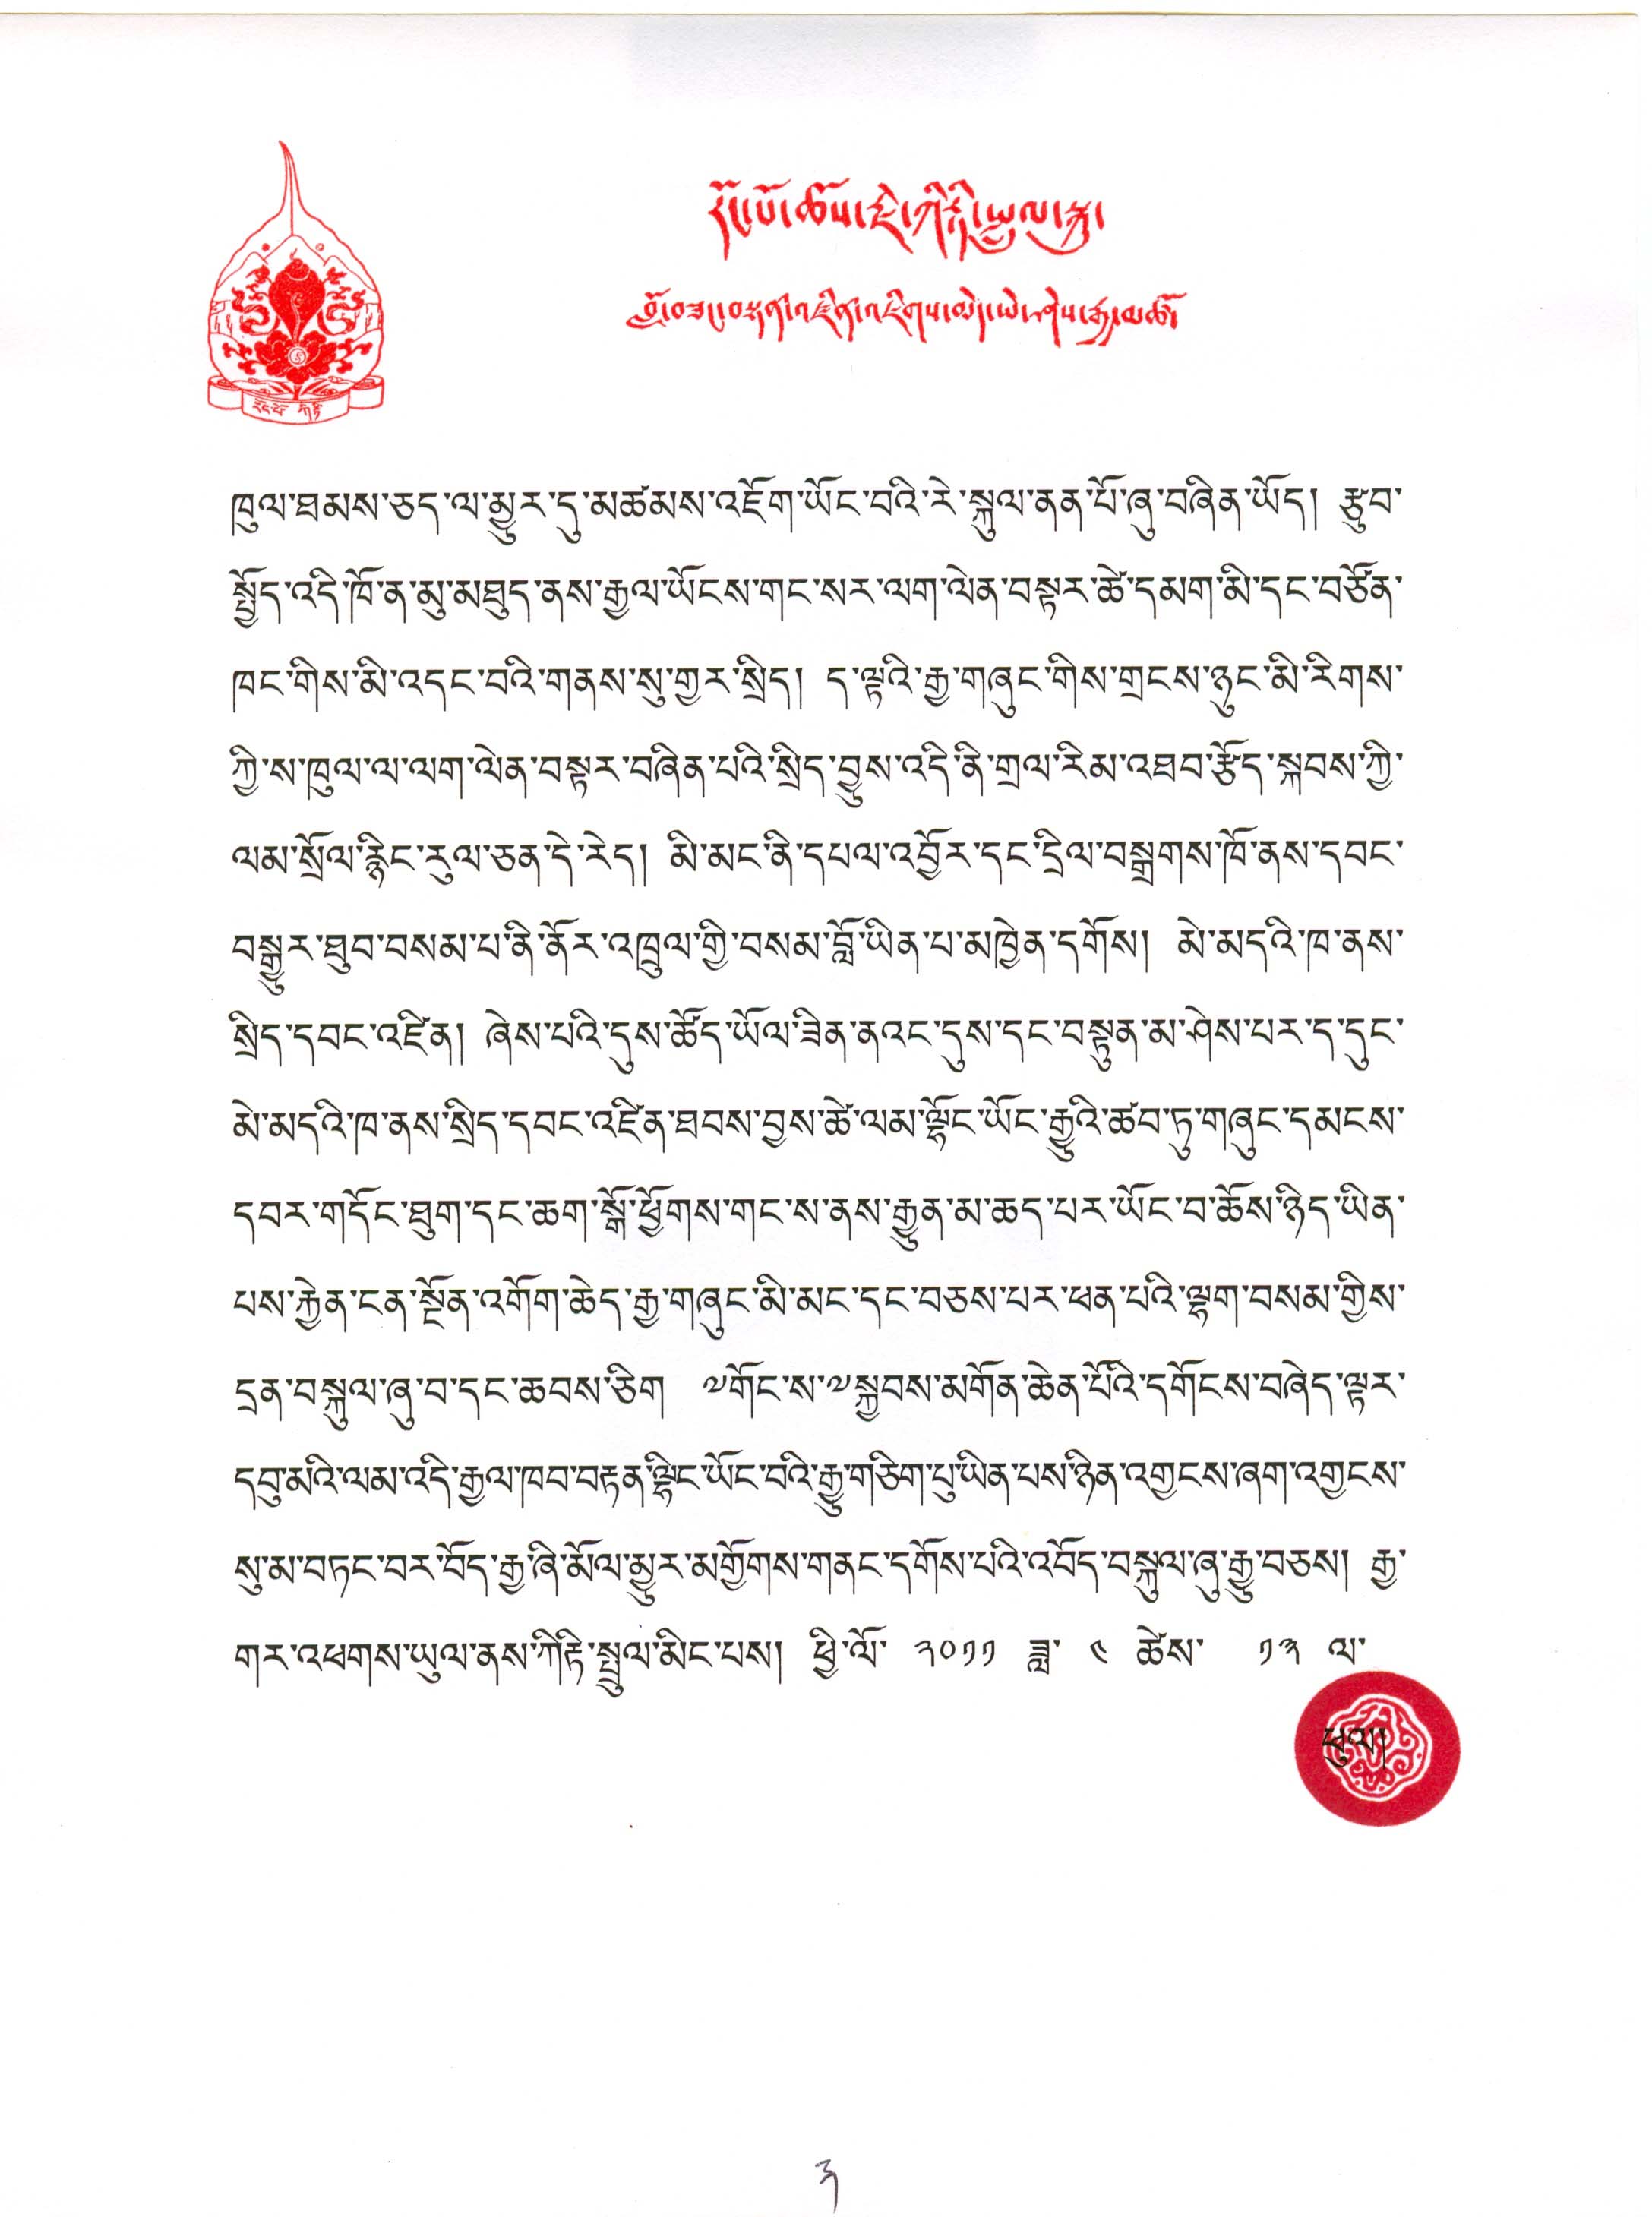 རོང་པོ་ཆོས་རྗེ་ཀིརྟི་སྤྲུལ་སྐུ།
རོང་པོ་ ཀིརྟི
ཁུལ་ཐམས་ཅད་ལ་མྱུར་དུ་མཚམས་འཇོག་ཡོང་བའི་རེ་སྐུལ་ནན་པོ་ཞུ་བཞིན་ཡོད། རྩུབ་
སྤྱོད་འདི་ཁོ་ན་མུ་མཐུད་ནས་རྒྱལ་ཡོངས་གང་སར་ལག་ལེན་བསྟར་ཚེ་དམག་མི་དང་བཙོན་
ཁང་གིས་མི་འདང་བའི་གནས་སུ་གྱར་སྲིད། ད་ལྟའི་རྒྱ་གཞུང་གིས་གྲངས་ཉུང་མི་རིགས་
ཀྱི་ས་ཁུལ་ལ་ལག་ལེན་བསྟར་བཞིན་པའི་སྲིད་བྱུས་འདི་ནི་གྲལ་རིམ་འཐབ་རྩོད་སྐབས་ཀྱི་
ལམ་སྲོལ་རྙིང་རུལ་ཅན་དེ་རེད། མི་མང་ནི་དཔལ་འབྱོར་དང་དྲིལ་བསྒྲགས་ཁོ་ནས་དབང་
བསྒྱུར་ཐུབ་བསམ་པ་ནི་ནོར་འཁྲུལ་གྱི་བསམ་བློ་ཡིན་པ་མཁྱེན་དགོས། མེ་མདའི་ཁ་ནས་
སྲིད་དབང་འཛིན། ཞེས་པའི་དུས་ཚོད་ཡོལ་ཟིན་ནའང་དུས་དང་བསྟུན་མ་ཤེས་པར་ད་དུང་
མེ་མདའི་ཁ་ནས་སྲིད་དབང་འཛིན་ཐབས་བྱས་ཚེ་ལམ་ལྷོང་ཡོང་རྒྱུའི་ཚབ་ཏུ་གཞུང་དམངས་
དབར་གདོང་ཐུག་དང་ཆག་སྒོ་ཕྱོགས་གང་ས་ནས་རྒྱུན་མ་ཆད་པར་ཡོང་བ་ཆོས་ཉིད་ཡིན་
པས་རྐྱེན་ངན་སྔོན་འགོག་ཆེད་རྒྱ་གཞུང་མི་མང་དང་བཅས་པར་ཕན་པའི་ལྷག་བསམ་གྱིས་
དྲན་བསྐུལ་ཞུ་བ་དང་ཆབས་ཅིག ༧གོང་ས་༧སྐྱབས་མགོན་ཆེན་པོའི་དགོངས་བཞེད་ལྟར་
དབུ་མའི་ལམ་འདི་རྒྱལ་ཁབ་བརྟན་ལྷིང་ཡོང་བའི་རྒྱུ་གཅིག་པུ་ཡིན་པས་ཉིན་འགྱངས་ཞག་འགྱངས་
སུ་མ་བཏང་བར་བོད་རྒྱ་ཞི་མོལ་མྱུར་མགྱོགས་གནང་དགོས་པའི་འབོད་བསྐུལ་ཞུ་རྒྱུ་བཅས། རྒྱ་
གར་འཕགས་ཡུལ་ནས་ཀིརྟི་སྤྲུལ་མིང་པས། ཕྱི་ལོ་ ༢༠༡༡ ཟླ་ ༤ ཚེས་ ༡༣ ལ་
ཕུལ།
༣